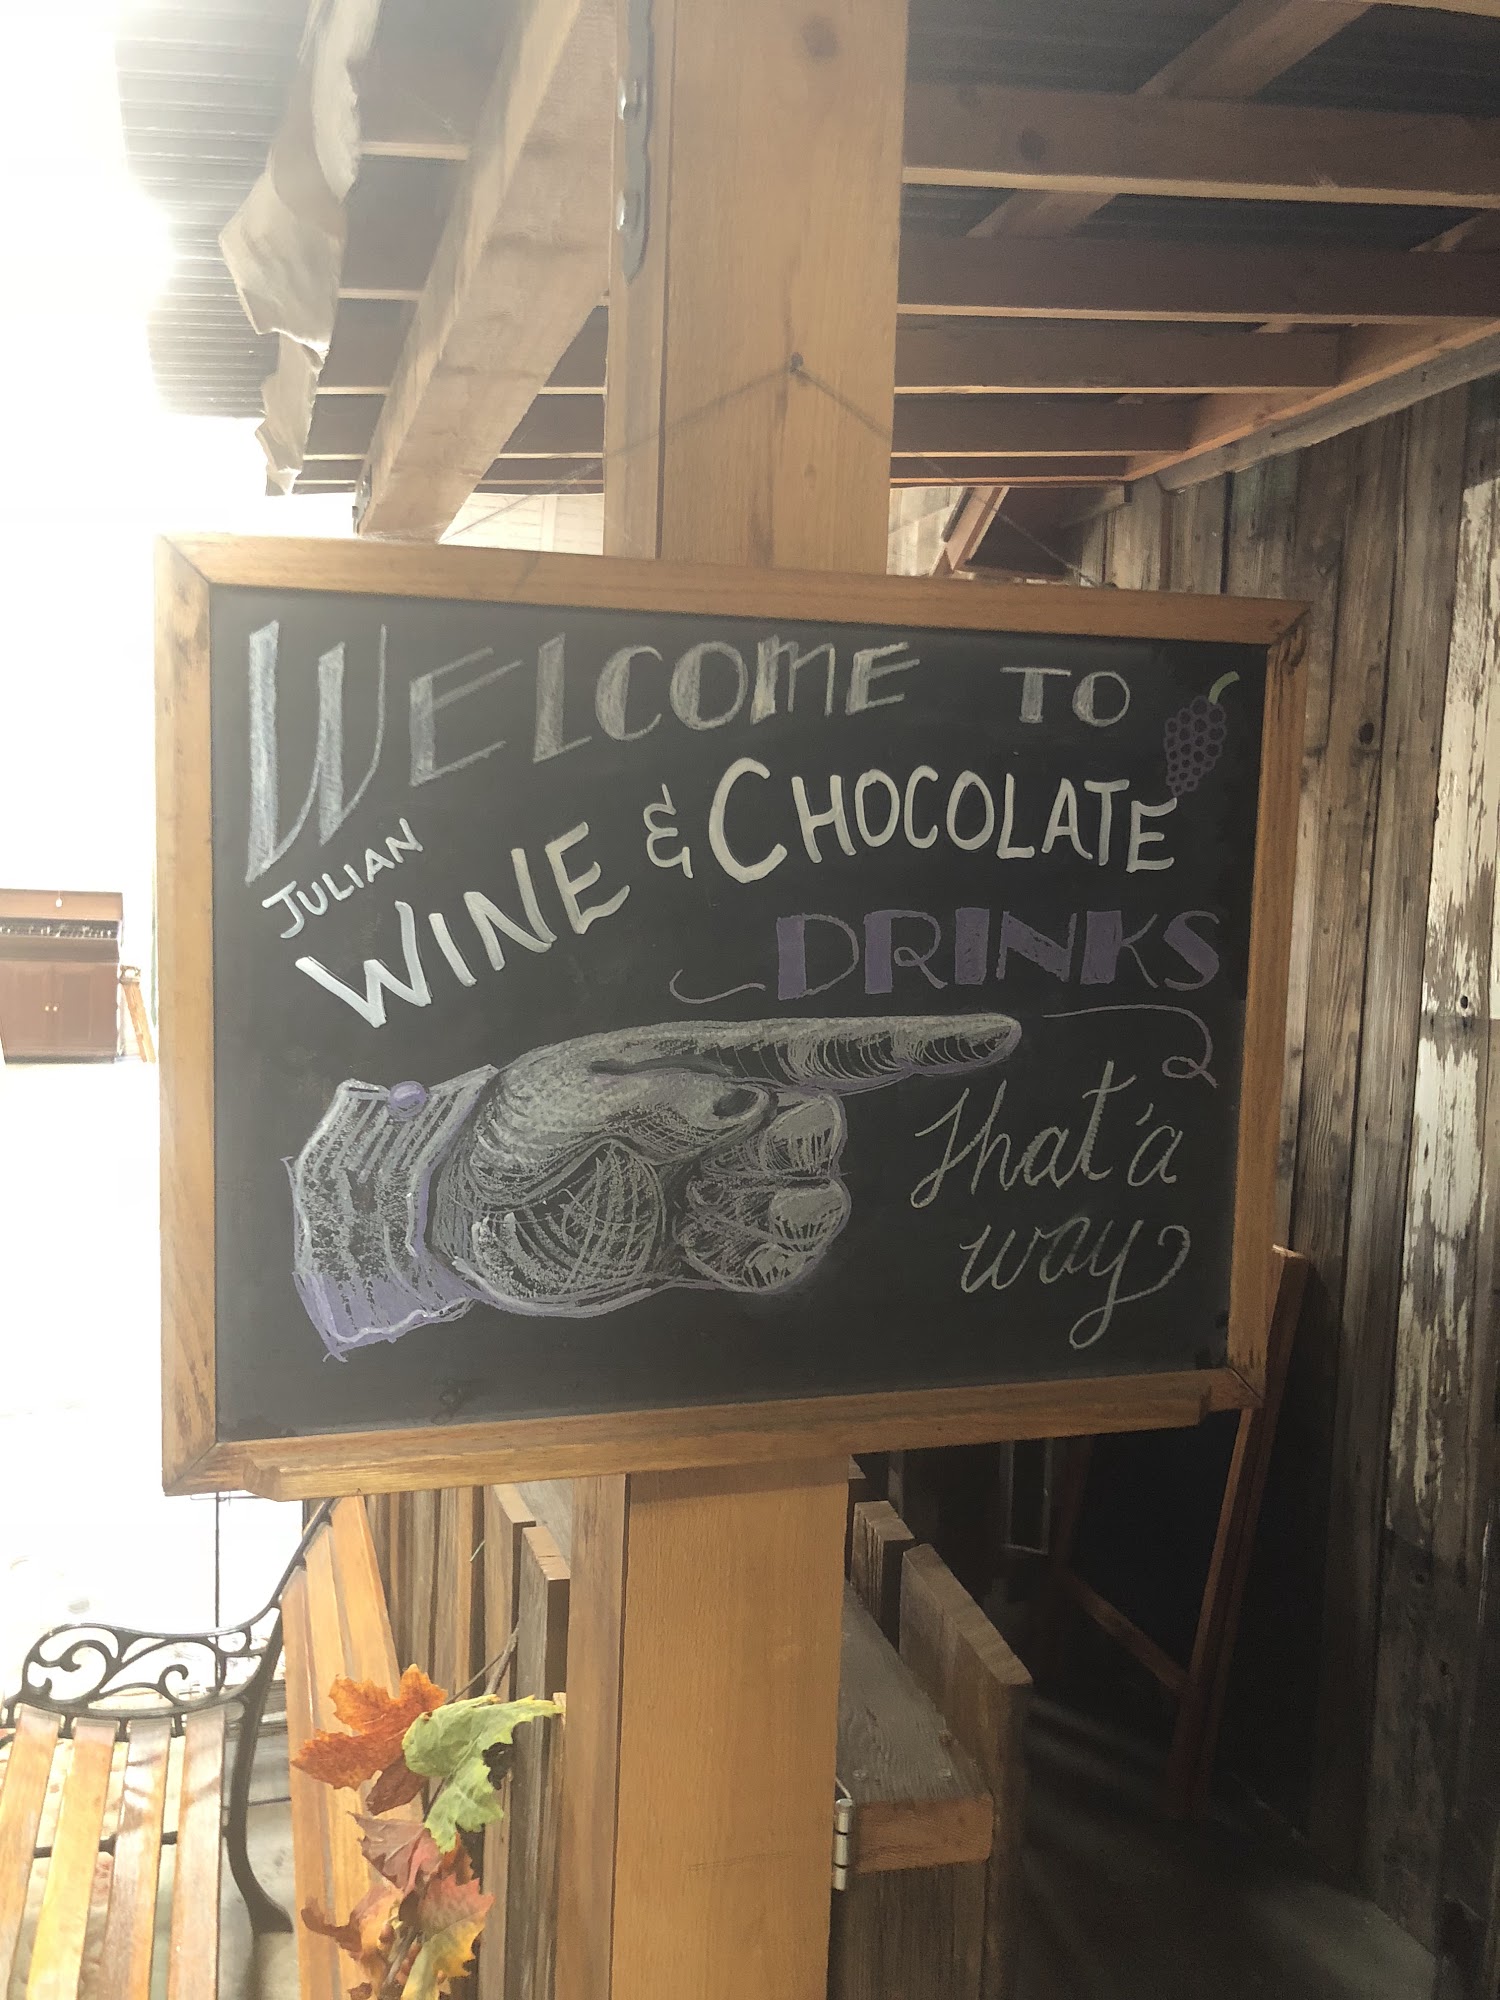 WELCOME TO
JULIAN
WINE & CHOCOLATE
DRINKS
That'a
way